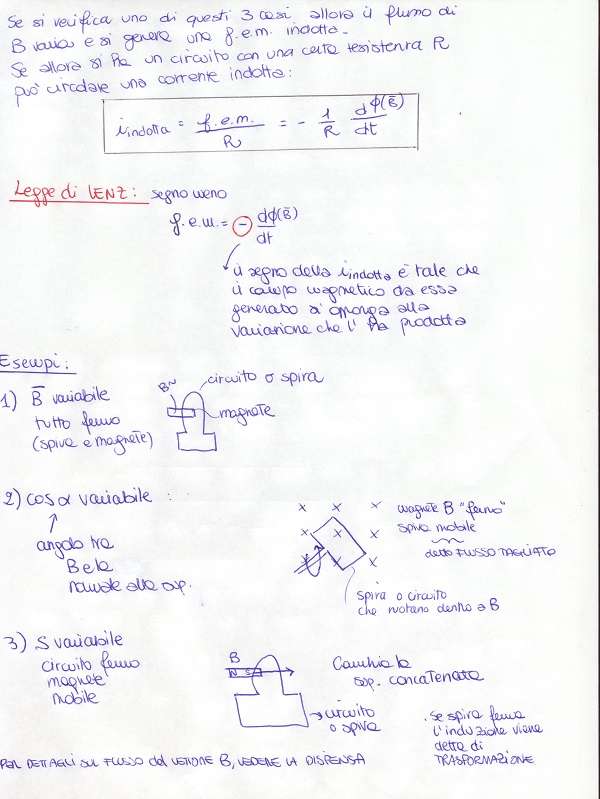 Se si verifica uno di questi 3 casi allora il flusso di
B varia e si genera una f.e.m. indotta.
Se allora si ha un circuito con una certa resistenza R
può circolare una corrente indotta:
i indotta = f.e.m. / R = - 1/R dφ(B̄)/dt
Legge di LENZ: segno meno
f.e.m. = - dφ(B̄)/dt
il segno della i indotta è tale che
il campo magnetico da essa
generato si opponga alla
variazione che l'ha prodotta
Esempi:
1) B̄ variabile
tutto fermo
(spira e magnete)
B~
circuito o spira
magnete
2) cos α variabile :
angolo tra
B e la
normale alla sup.
x x x
x x
x x
magnete B "fermo"
spira mobile
detto FLUSSO TAGLIATO
spira o circuito
che ruotano dentro a B
3) S variabile
circuito fermo
magnete
mobile
B
N S
circuito
o spira
Cambia la
sup. concatenata
. se spira ferma
l'induzione viene
detta di
TRASFORMAZIONE
PER DETTAGLI SUL FLUSSO del VETTORE B, VEDERE LA DISPENSA